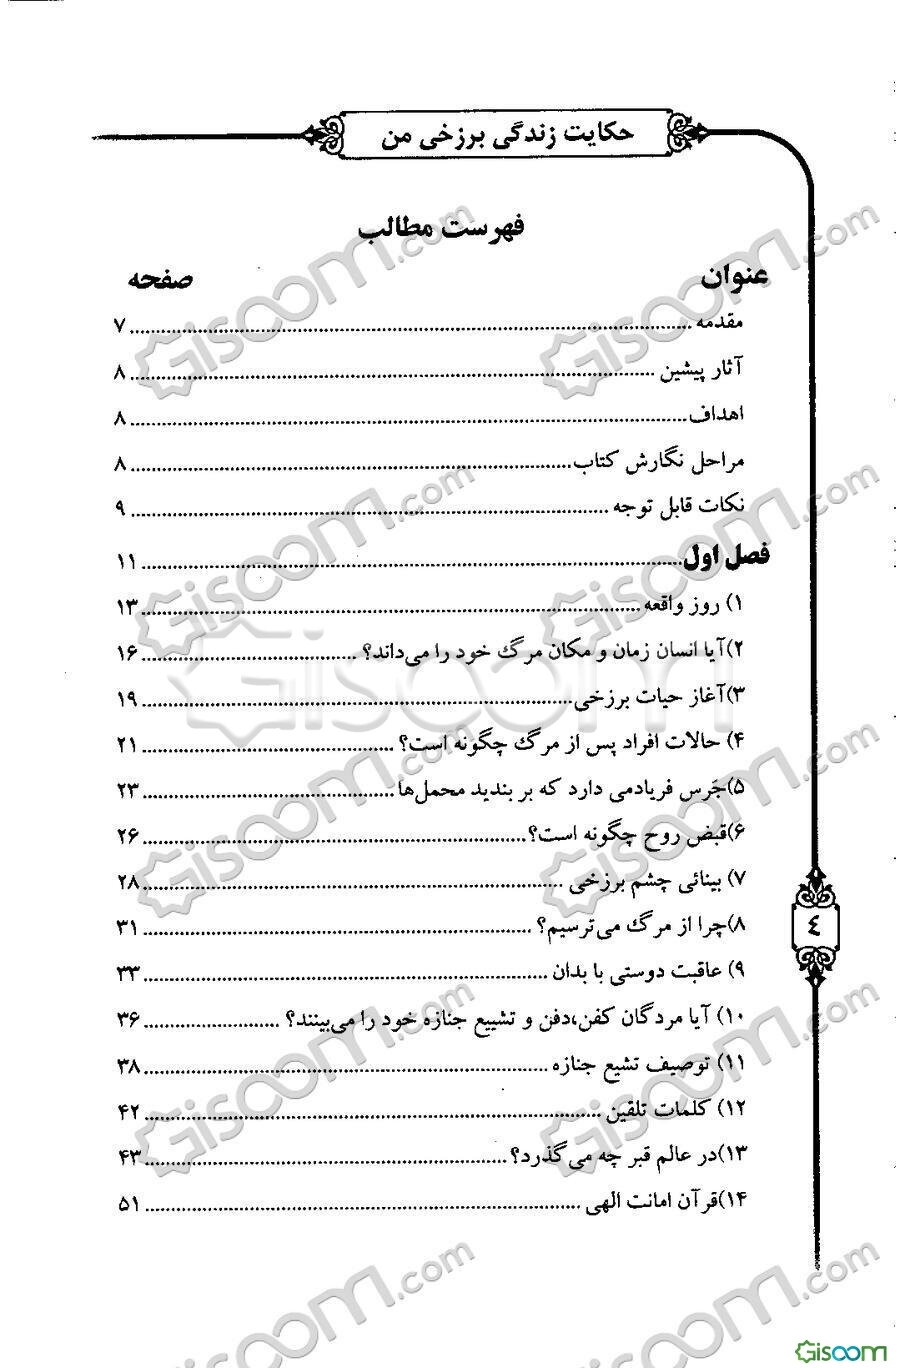 حکایت زندگی برزخی من
فهرست مطالب
عنوان صفحه
مقدمه ........ ۷
آثار پیشین ........ ۸
اهداف ........ ۸
مراحل نگارش کتاب ........ ۸
نکات قابل توجه ........ ۹
فصل اول ........ ۱۱
۱) روز واقعه ........ ۱۳
۲)آیا انسان زمان و مکان مرگ خود را می‌داند؟ ........ ۱۶
۳)آغاز حیات برزخی ........ ۱۹
۴) حالات افراد پس از مرگ چگونه است؟ ........ ۲۱
۵)جَرس فریادمی دارد که بر بندید محمل‌ها ........ ۲۳
۶)قبض روح چگونه است؟ ........ ۲۶
۷) بینائی چشم برزخی ........ ۲۸
۸)چرا از مرگ می‌ترسیم؟ ........ ۳۱
۹) عاقبت دوستی با بدان ........ ۳۳
۱۰) آیا مردگان کفن،دفن و تشییع جنازه خود را می‌بینند؟ ........ ۳۶
۱۱) توصیف تشیع جنازه ........ ۳۸
۱۲) کلمات تلقین ........ ۴۲
۱۳)در عالم قبر چه می‌گذرد؟ ........ ۴۳
۱۴)قرآن امانت الهی ........ ۵۱
٤
Gisoom.com
Gisoom